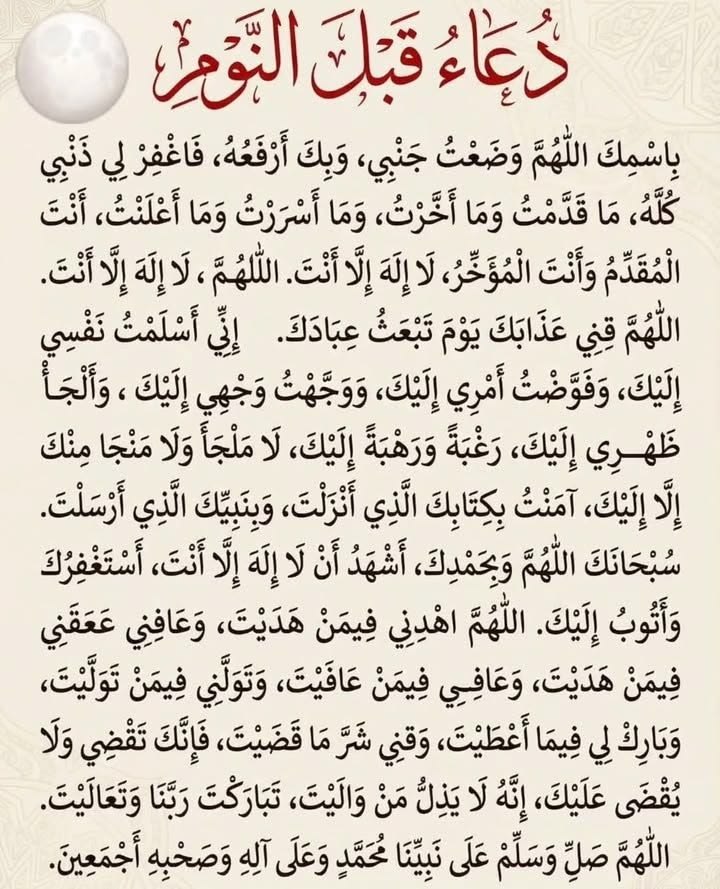 دُعَاءُ قَبْلَ النَّوْمِ
بِاسْمِكَ اللَّهُمَّ وَضَعْتُ جَنْبِي، وَبِكَ أَرْفَعُهُ، فَاغْفِرْ لِي ذَنْبِي
كُلَّهُ، مَا قَدَّمْتُ وَمَا أَخَّرْتُ، وَمَا أَسْرَرْتُ وَمَا أَعْلَنْتُ، أَنْتَ
الْمُقَدِّمُ وَأَنْتَ الْمُؤَخِّرُ، لَا إِلَهَ إِلَّا أَنْتَ. اللَّهُمَّ، لَا إِلَهَ إِلَّا أَنْتَ.
اللَّهُمَّ قِنِي عَذَابَكَ يَوْمَ تَبْعَثُ عِبَادَكَ. إِنِّي أَسْلَمْتُ نَفْسِي
إِلَيْكَ، وَفَوَّضْتُ أَمْرِي إِلَيْكَ، وَوَجَّهْتُ وَجْهِي إِلَيْكَ، وَأَلْجَأْ
ظَهْرِي إِلَيْكَ، رَغْبَةً وَرَهْبَةً إِلَيْكَ، لَا مَلْجَأَ وَلَا مَنْجَا مِنْكَ
إِلَّا إِلَيْكَ، آمَنْتُ بِكِتَابِكَ الَّذِي أَنْزَلْتَ، وَبِنَبِيِّكَ الَّذِي أَرْسَلْتَ.
سُبْحَانَكَ اللَّهُمَّ وَبِحَمْدِكَ، أَشْهَدُ أَنْ لَا إِلَهَ إِلَّا أَنْتَ، أَسْتَغْفِرُكَ
وَأَتُوبُ إِلَيْكَ. اللَّهُمَّ اهْدِنِي فِيمَنْ هَدَيْتَ، وَعَافِنِي عَعَقَنِي
فِيمَنْ هَدَيْتَ، وَعَافِـي فِيمَنْ عَافَيْتَ، وَتَوَلَّنِي فِيمَنْ تَوَلَّيْتَ،
وَبَارِكْ لِي فِيمَا أَعْطَيْتَ، وَقِنِي شَرَّ مَا قَضَيْتَ، فَإِنَّكَ تَقْضِي وَلَا
يُقْضَى عَلَيْكَ، إِنَّهُ لَا يَذِلُّ مَنْ وَالَيْتَ، تَبَارَكْتَ رَبَّنَا وَتَعَالَيْتَ.
اللَّهُمَّ صَلِّ وَسَلِّمْ عَلَى نَبِيِّنَا مُحَمَّدٍ وَعَلَى آلِهِ وَصَحْبِهِ أَجْمَعِينَ.